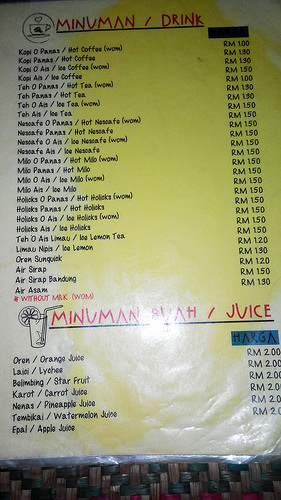 MINUMAN / DRINK
HARGA
Kopi O Panas / Hot Coffee (wom) RM 1.00
Kopi Panas / Hot Coffee RM 1.30
Kopi O Ais / Ice Coffee (wom) RM 1.30
Kopi Ais / Ice Coffee RM 1.50
Teh O Panas / Hot Tea (wom) RM 1.00
Teh Panas / Hot Tea RM 1.30
Teh O Ais / Ice Tea (wom) RM 1.30
Teh Ais / Ice Tea RM 1.50
Nescafe O Panas / Hot Nescafe (wom) RM 1.50
Nescafe Panas / Hot Nescafe RM 1.50
Nescafe O Ais / Ice Nescafe (wom) RM 1.50
Nescafe Ais / Ice Nescafe RM 1.50
Milo O Panas / Hot Milo (wom) RM 1.50
Milo Panas / Hot Milo RM 1.50
Milo O Ais / Ice Milo (wom) RM 1.50
Milo Ais / Ice Milo RM 1.50
Holicks O Panas / Hot Holicks (wom) RM 1.50
Holicks Panas / Hot Holicks RM 1.50
Holicks O Ais / Ice Holicks (wom) RM 1.50
Holicks Ais / Ice Holicks RM 1.50
Teh O Ais Limau / Ice Lemon Tea RM 1.50
Limau Nipis / Ice Lemon RM 1.20
Oren Sunquick RM 1.30
Air Sirap RM 1.20
Air Sirap Bandung RM 1.50
Air Asam RM 1.30
* WITHOUT MILK (WOM)
MINUMAN BUAH / JUICE
HARGA
Oren / Orange Juice RM 2.00
Laici / Lychee RM 2.00
Belimbing / Star Fruit RM 2.00
Karot / Carrot Juice RM 2.00
Nenas / Pineapple Juice RM 2.0
Tembikai / Watermelon Juice RM 2.0
Epal / Apple Juice